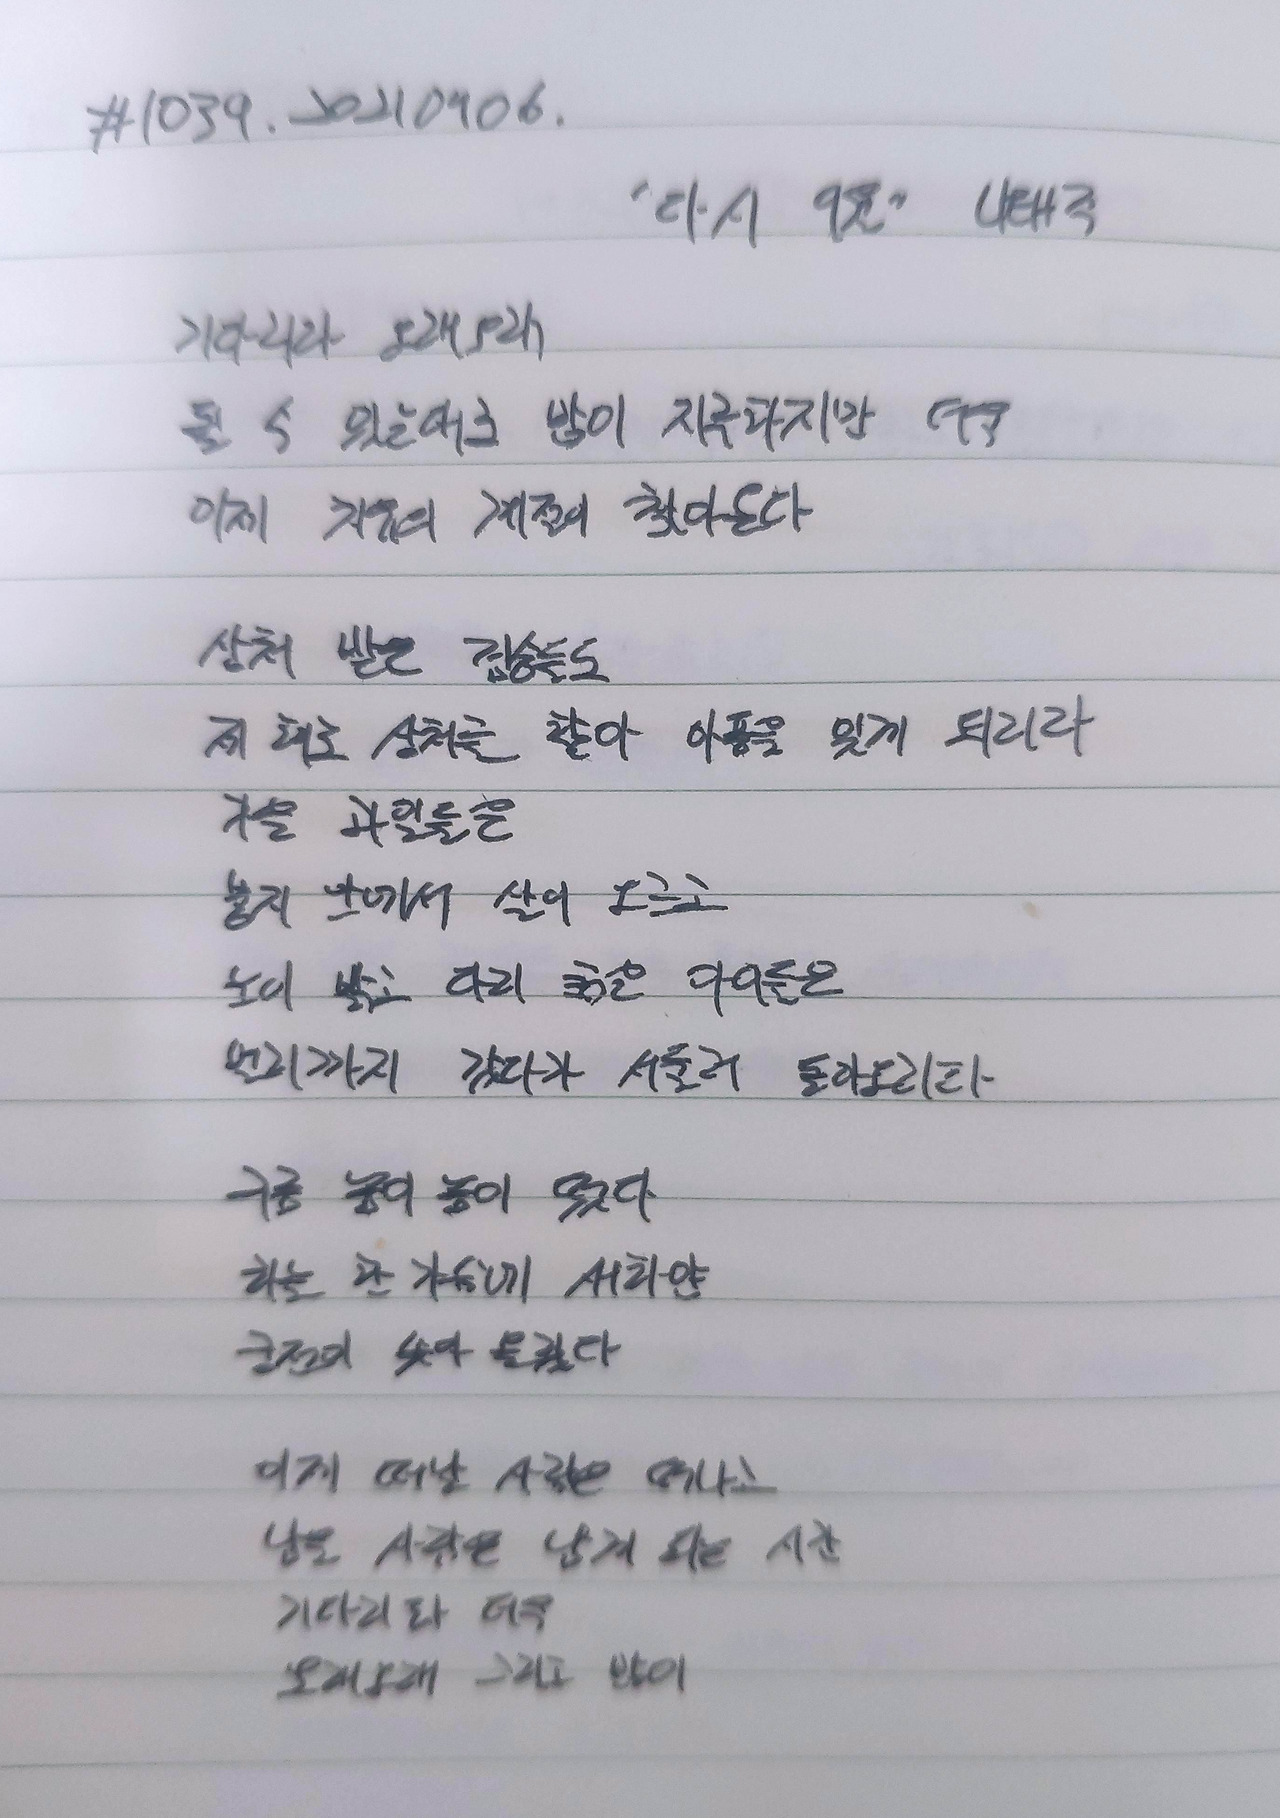 #1039. 20210906.
"다시 9월" 나태주
기다리라 오래오래
될 수 있는대로 많이 지루하지만 더욱
이제 치유의 계절이 찾아온다
상처 받은 짐승들도
제 혀로 상처를 핥아 아픔을 잊게 되리라
가을 과일들은
봉지 안에서 살이 오르고
눈이 밝고 다리 굵은 아이들은
멀리까지 갔다가 서둘러 돌아오리라
구름 높이 높이 떴다
하늘 한 가슴에 새하얀
궁전이 솟아 올랐다
이제 떠날 사람은 떠나고
남을 사람은 남게 되는 시간
기다리라 더욱
오래오래 그리고 많이